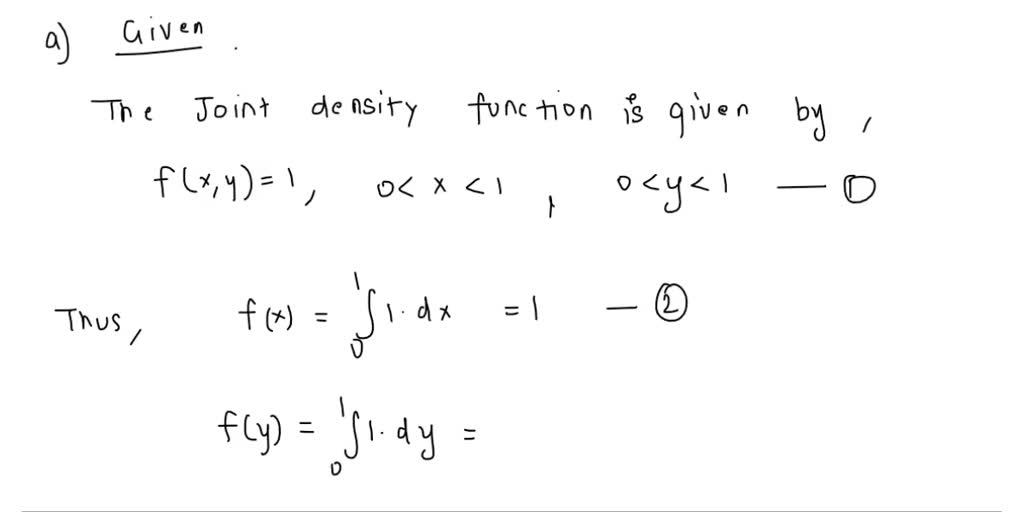 a) Given .
The Joint density function is given by ,
f(x,y)=1, 0< x <1 , 0<y<1 — ①
Thus, f(x) = ∫₀¹ 1. dx = 1 — ②
f(y) = ∫₀¹ 1. dy =